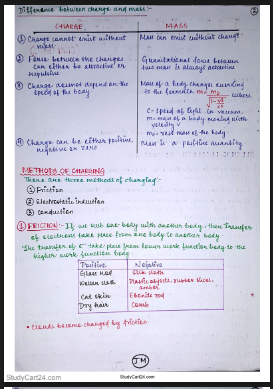 Difference between charge and mass:-
CHARGE
MASS
① Charge cannot exist without mass
Mass can exist without charge.
② Force between the charges can either be attractive or repulsive
Gravitational force between two mass is always attractive
③ Charge does not depend on the speed of the body
Mass of a body changes according to the formula m = m₀ / √(1 - v²/c²) where
c - speed of light in vacuum
m = mass of a body moving with velocity v
m₀ = rest mass of the body
④ Charge can be either positive, negative or zero
Mass is a positive quantity
METHODS OF CHARGING
There are three methods of charging
① Friction
② Electrostatic induction
③ Conduction
① FRICTION:- If we rub one body with another body, then transfer
of electrons take place from one body to another body.
The transfer of e⁻ take place from lower work function body to the
higher work function body
Positive
Negative
Glass rod
Silk cloth
Woolen cloth
Plastic objects, rubber shoes, amber
Cat skin
Ebonite rod
Dry hair
Comb
• Clouds become charged by friction
StudyCart24.com
StudyCart24.com